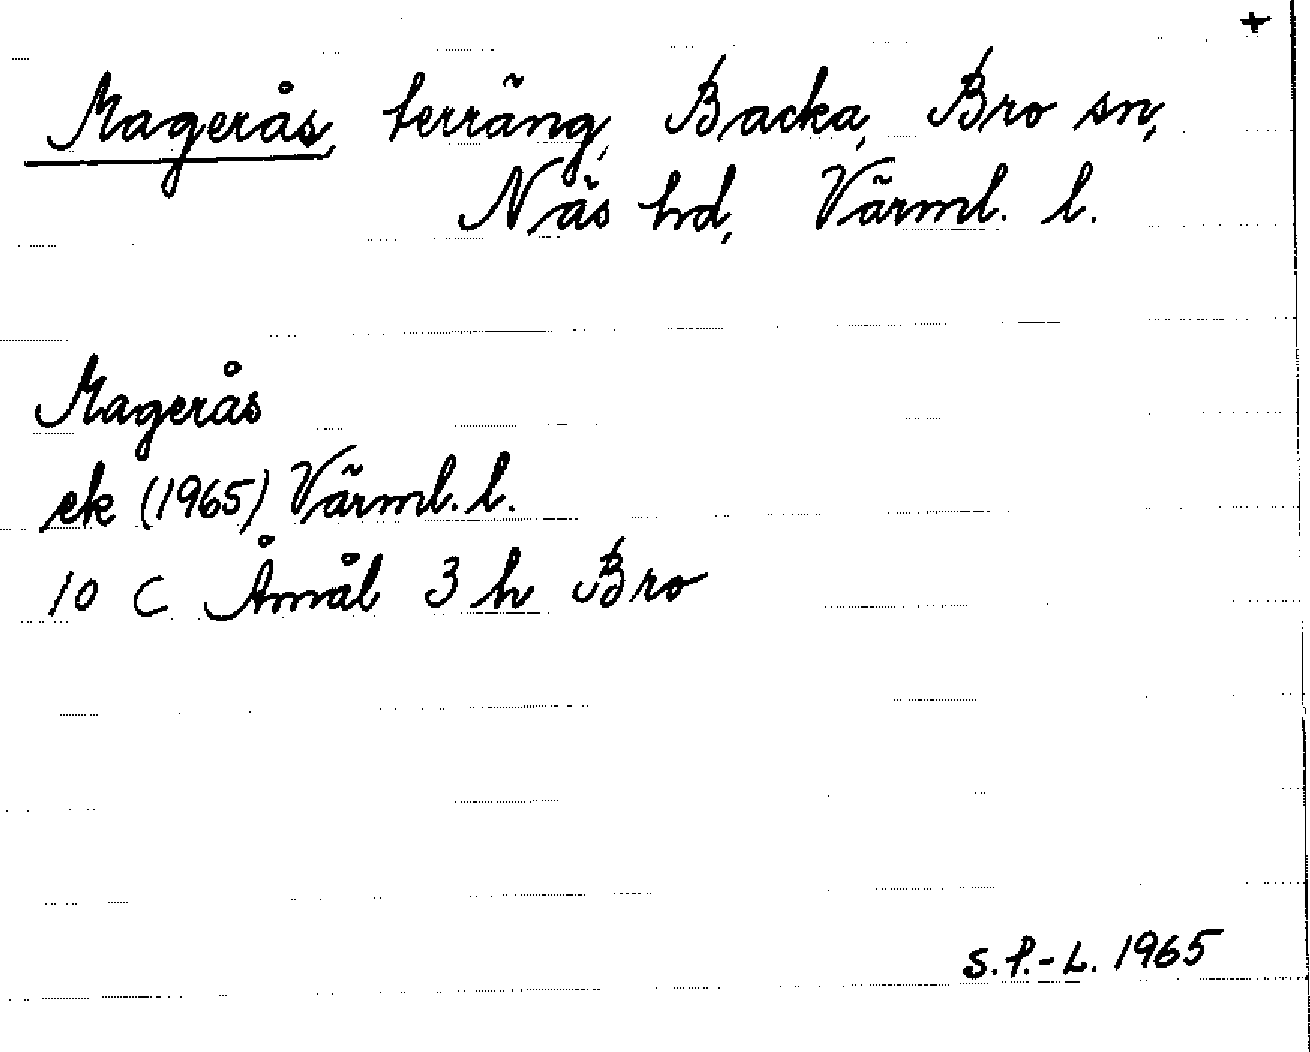 +
Magerås, terräng, Backa, Bro sn,
Näs hd, Värml. l.
Magerås
ek (1965) Värml. l.
10 C Åmål 3 h Bro
S.P.-L. 1965